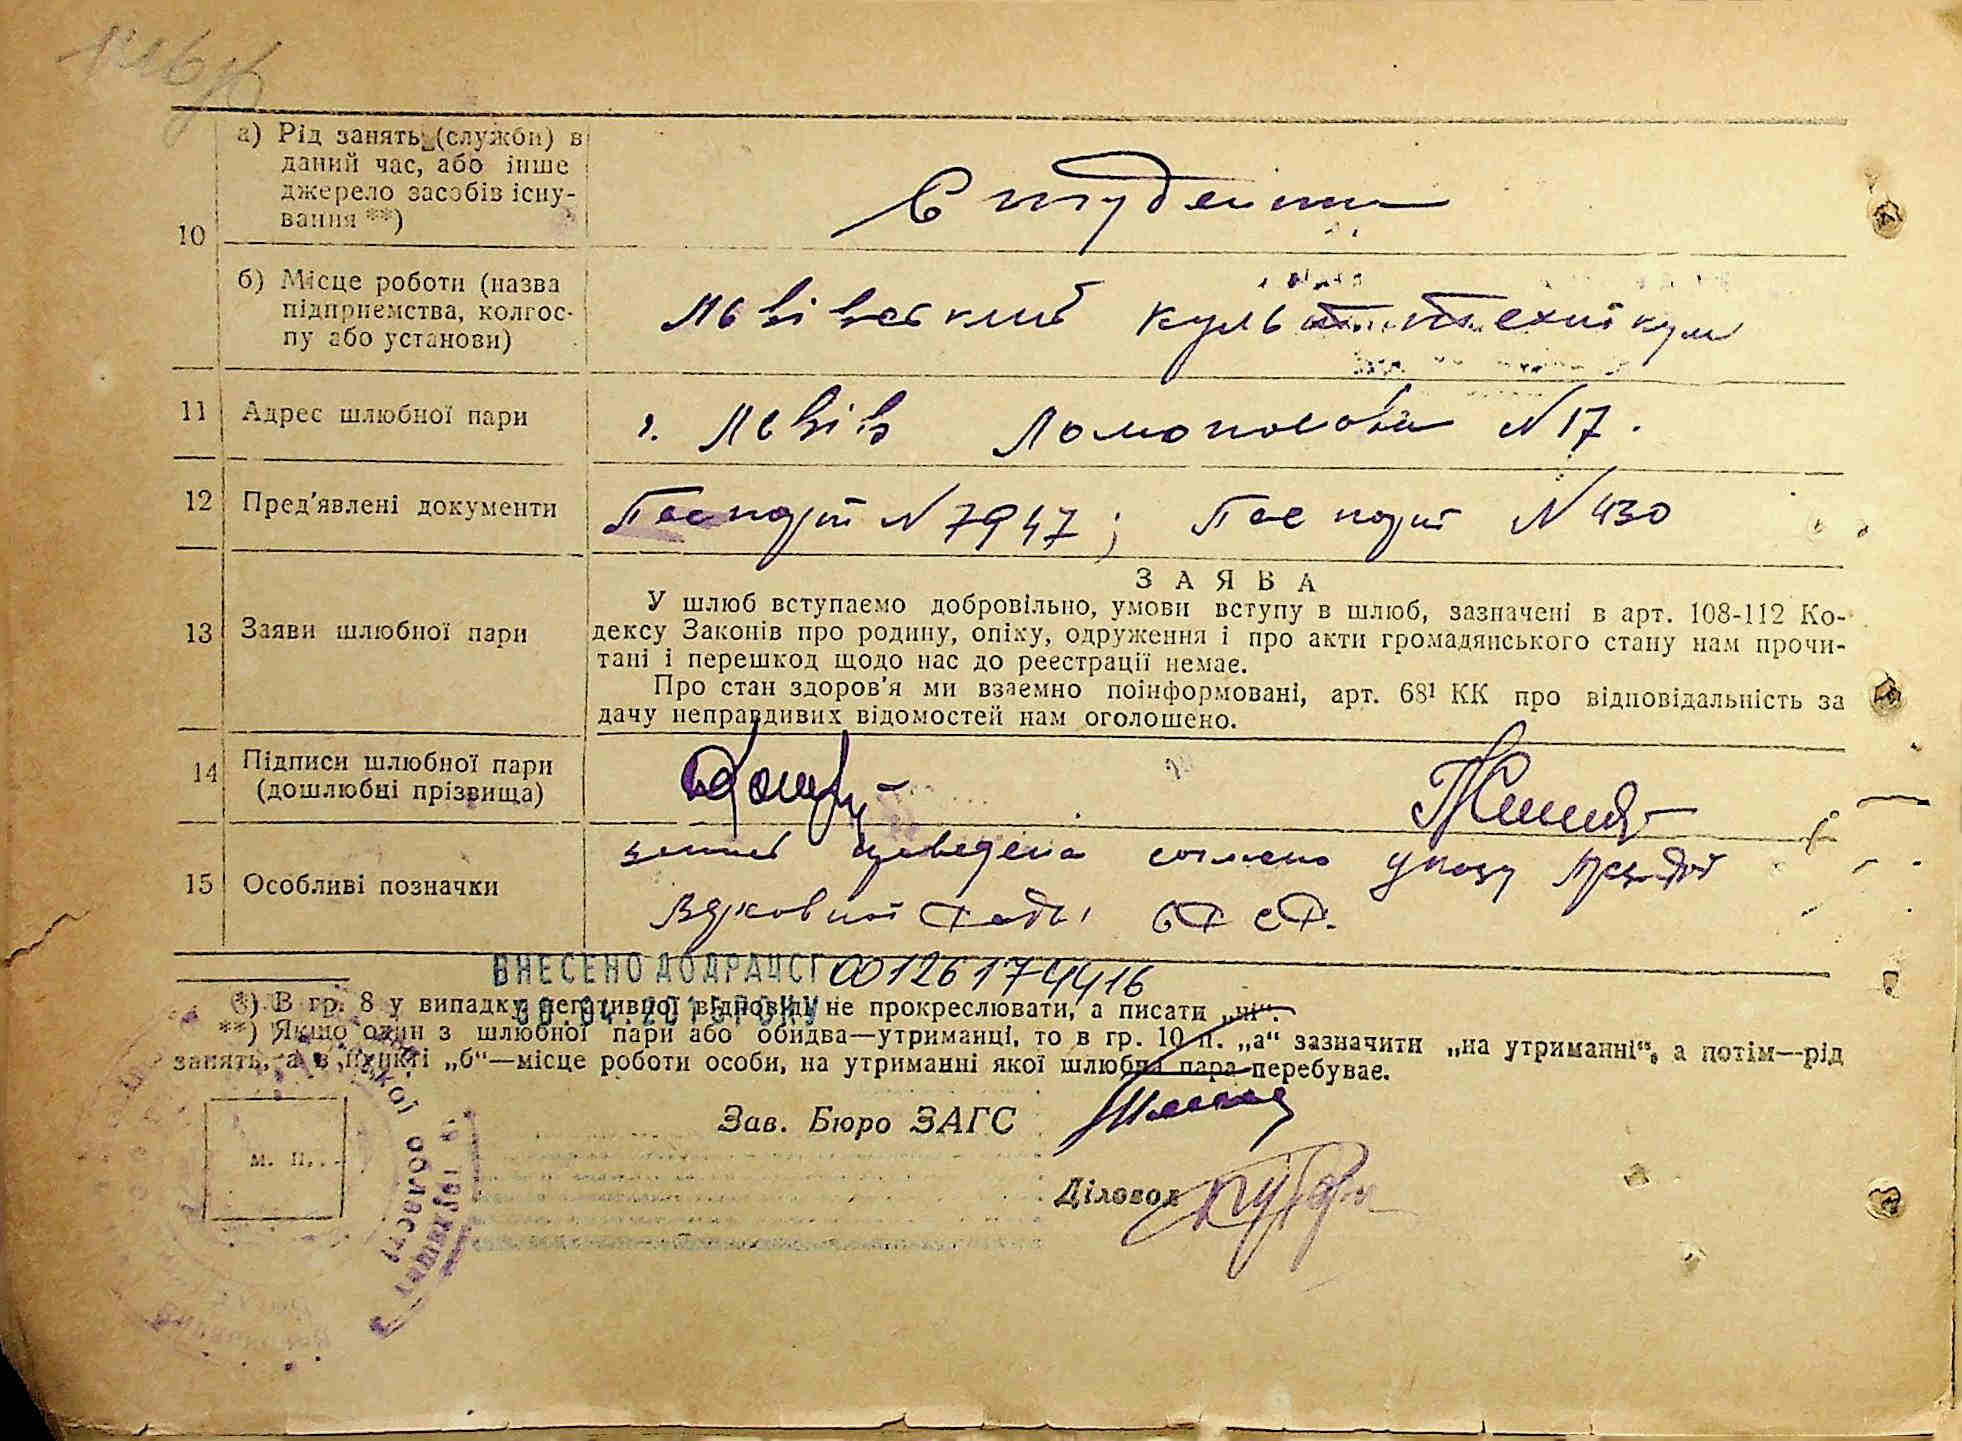 10
а) Рід занять (служби) в
даний час, або інше
джерело засобів існу-
вання **)
Студент
б) Місце роботи (назва
підприємства, колгос-
пу або установи)
Львівський культ технікум
11 Адрес шлюбної пари
г. Львів Ломоносова N 17.
12 Пред'явлені документи
Паспорт N 7947; Паспорт N 430
13 Заяви шлюбної пари
ЗАЯВА
У шлюб вступаємо добровільно, умови вступу в шлюб, зазначені в арт. 108-112 Ко-
дексу Законів про родину, опіку, одруження і про акти громадянського стану нам прочи-
тані і перешкод щодо нас до реєстрації немає.
Про стан здоров'я ми взаємно поінформовані, арт. 68¹ КК про відповідальність за
дачу неправдивих відомостей нам оголошено.
14 Підписи шлюбної пари
(дошлюбні прізвища)
15 Особливі позначки
указу
Верховної Ради
ВНЕСЕНО ДО ДРАЦСГ 00126174416
РОКУ
*) В гр. 8 у випадку негативної відповіді не прокреслювати, а писати „ні“.
**) Якщо один з шлюбної пари або обидва—утриманці, то в гр. 10 п. „а“ зазначити „на утриманні“, а потім—рід
занять, а в пункті „б“—місце роботи особи, на утриманні якої шлюбна пара перебуває.
Зав. Бюро ЗАГС
м. п.
Діловод
області